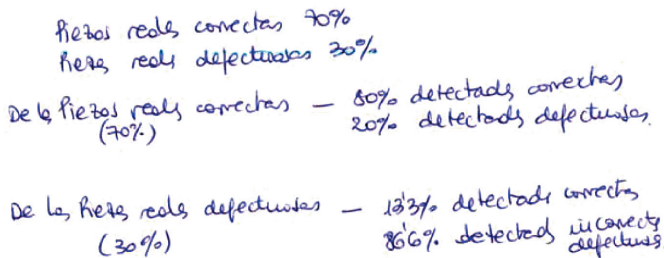 Piezas reales correctas 70%
Piezas reales defectuosas 30%
De las Piezas reales correctas — 80% detectadas correctas
(70%) 20% detectadas defectuosas.
De las Piezas reales defectuosas — 13'3% detectadas correctas
(30%) 86'6% detectadas incorrects
defectuosas